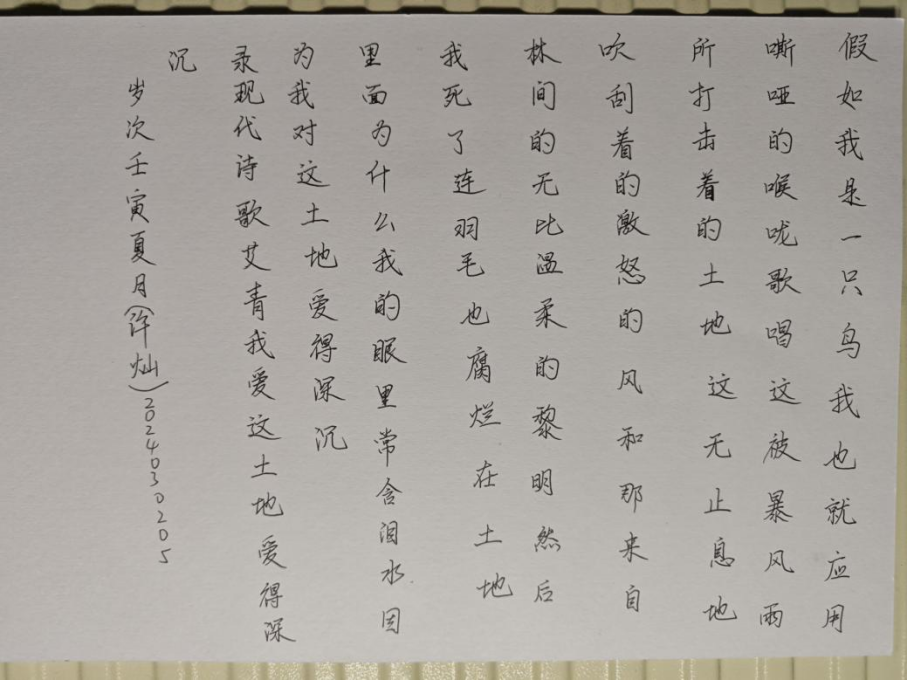 假如我是一只鸟我也就应用
嘶哑的喉咙歌唱这被暴风雨
所打击着的土地这无止息地
吹刮着的激怒的风和那来自
林间的无比温柔的黎明然后
我死了连羽毛也腐烂在土地
里面为什么我的眼里常含泪水因
为我对这土地爱得深沉
录现代诗歌艾青我爱这土地爱得深
沉
岁次壬寅夏月(许灿)2024030205